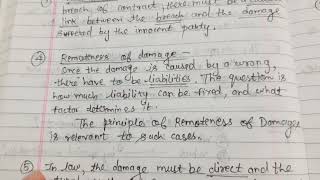 breach of contract, there must be a
link between the breach and the damage
suffered by the innocent party.
④ Remoteness of damage –
Once the damage is caused by a wrong,
there have to be liabilities. The question is
how much liability can be fixed, and what
factor determines it.
The principle of Remoteness of Damages
is relevant to such cases.
⑤ In law, the damage must be direct and the